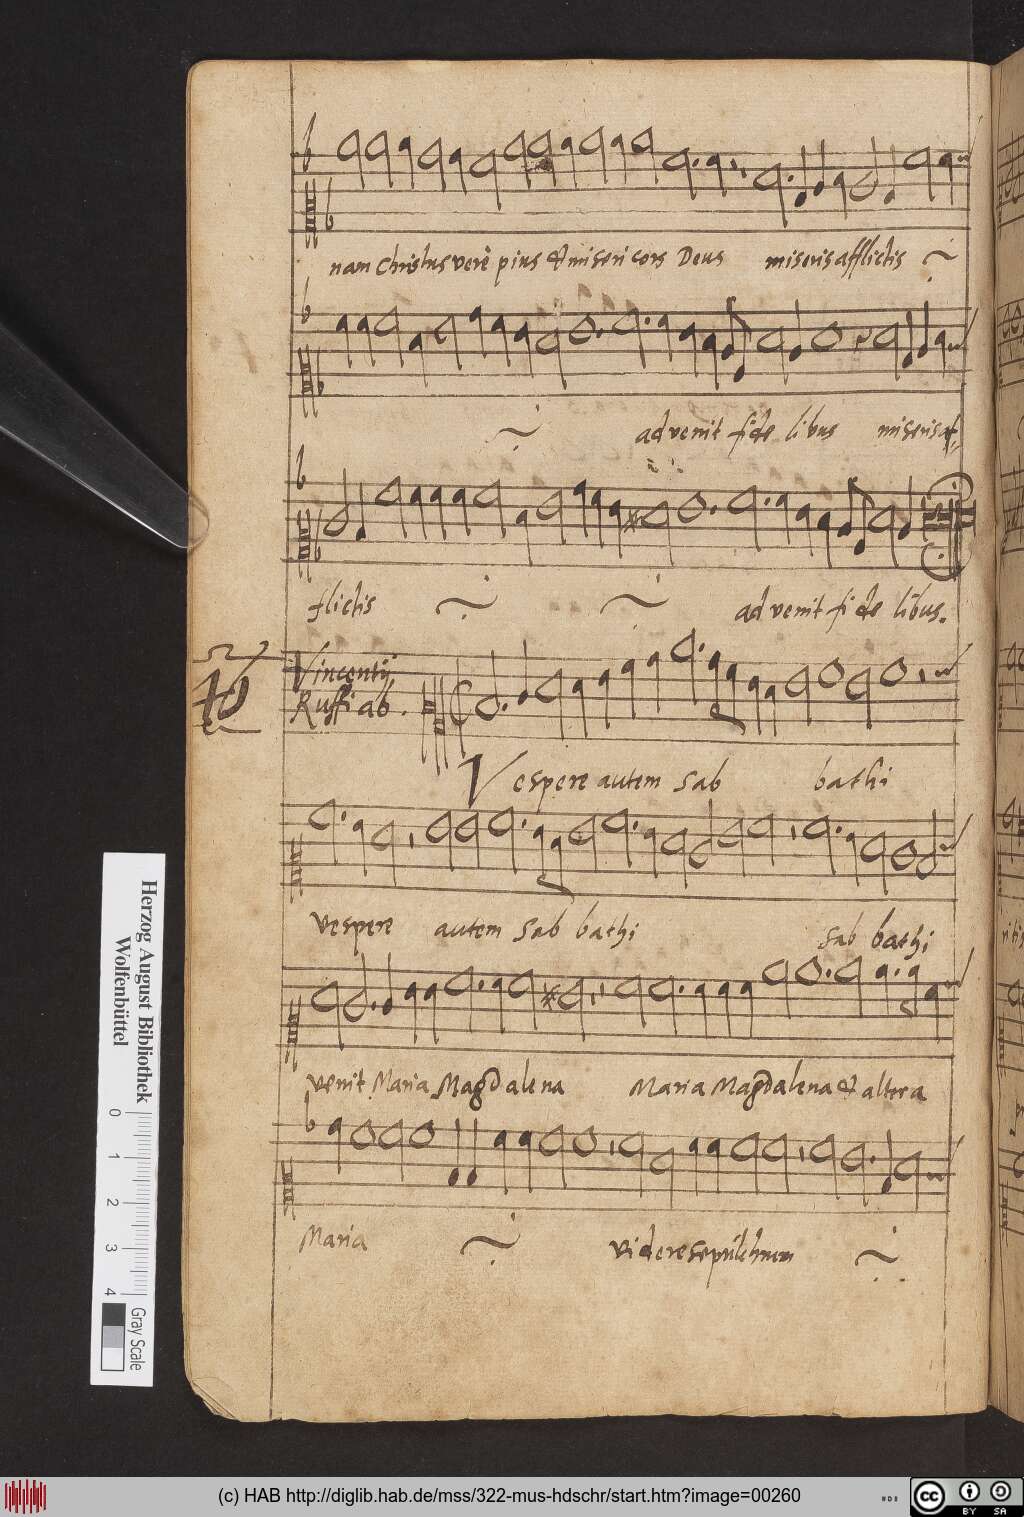 nam Christus verè pius & misericors Deus miseris afflictis
advenit fide libus miseris af,
flictis advenit fi de libus.
Vincentij
Ruffi ab.
Vespere autem Sab bathi
vespere autem Sab bathi Sab bathi
venit Maria Magdalena Maria Magdalena & altera
Maria videre sepulchrum
Herzog August Bibliothek
Wolfenbüttel
0 1 2 3 4
Gray Scale
(c) HAB http://diglib.hab.de/mss/322-mus-hdschr/start.htm?image=00260
cc BY SA